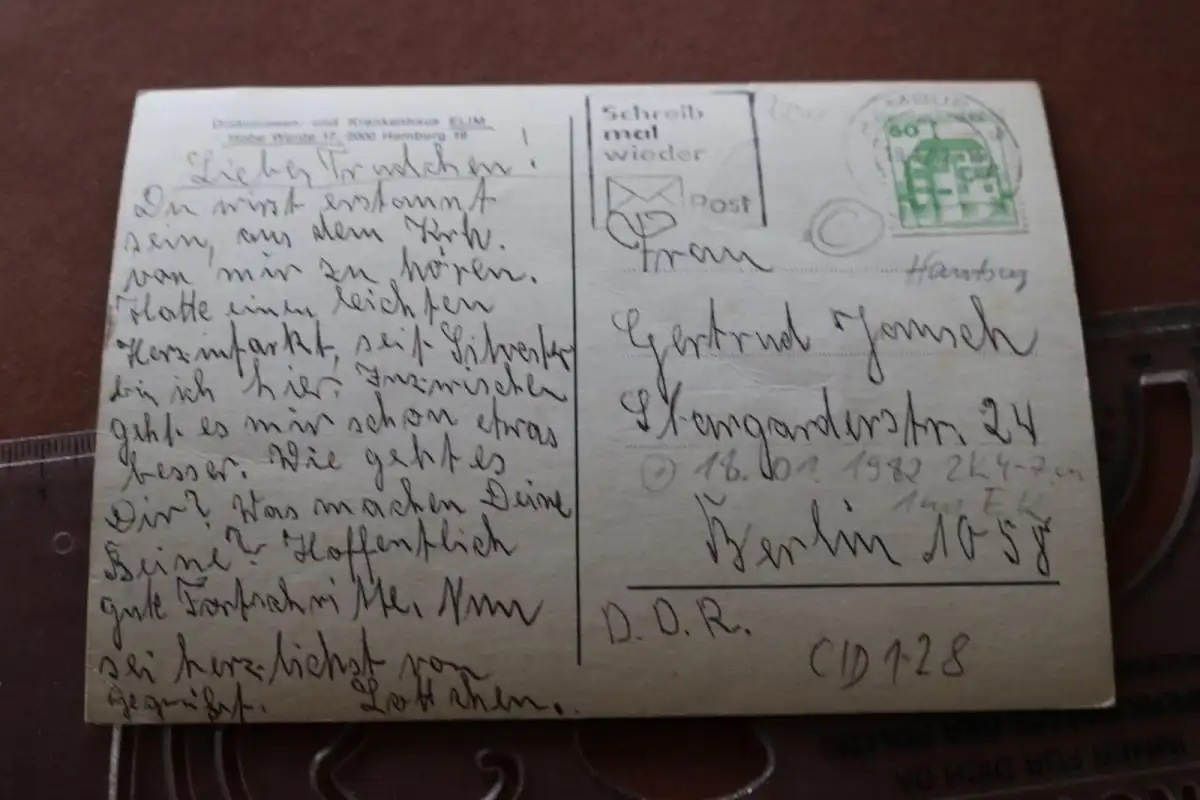 Diakonissen- und Krankenhaus ELIM
Hohe Weide 17, 2000 Hamburg 19
Liebes Trudchen!
Du wirst erstaunt
sein, aus dem Krh.
von mir zu hören.
Hatte einen leichten
Herzinfarkt, seit Silvester
bin ich hier. Inzwischen
geht es mir schon etwas
besser. Wie geht es
Dir? Was machen Deine
Beine? Hoffentlich
gute Fortschritte. Nun
sei herzlichst von
gegrüßt. Lottchen.
Schreib
mal
wieder
Post
60
Frau
Hamburg
Gertrud Jansch
Stargarderstr. 24
18. 01. 1982
Berlin 1058
D.D.R.
CID 1-28